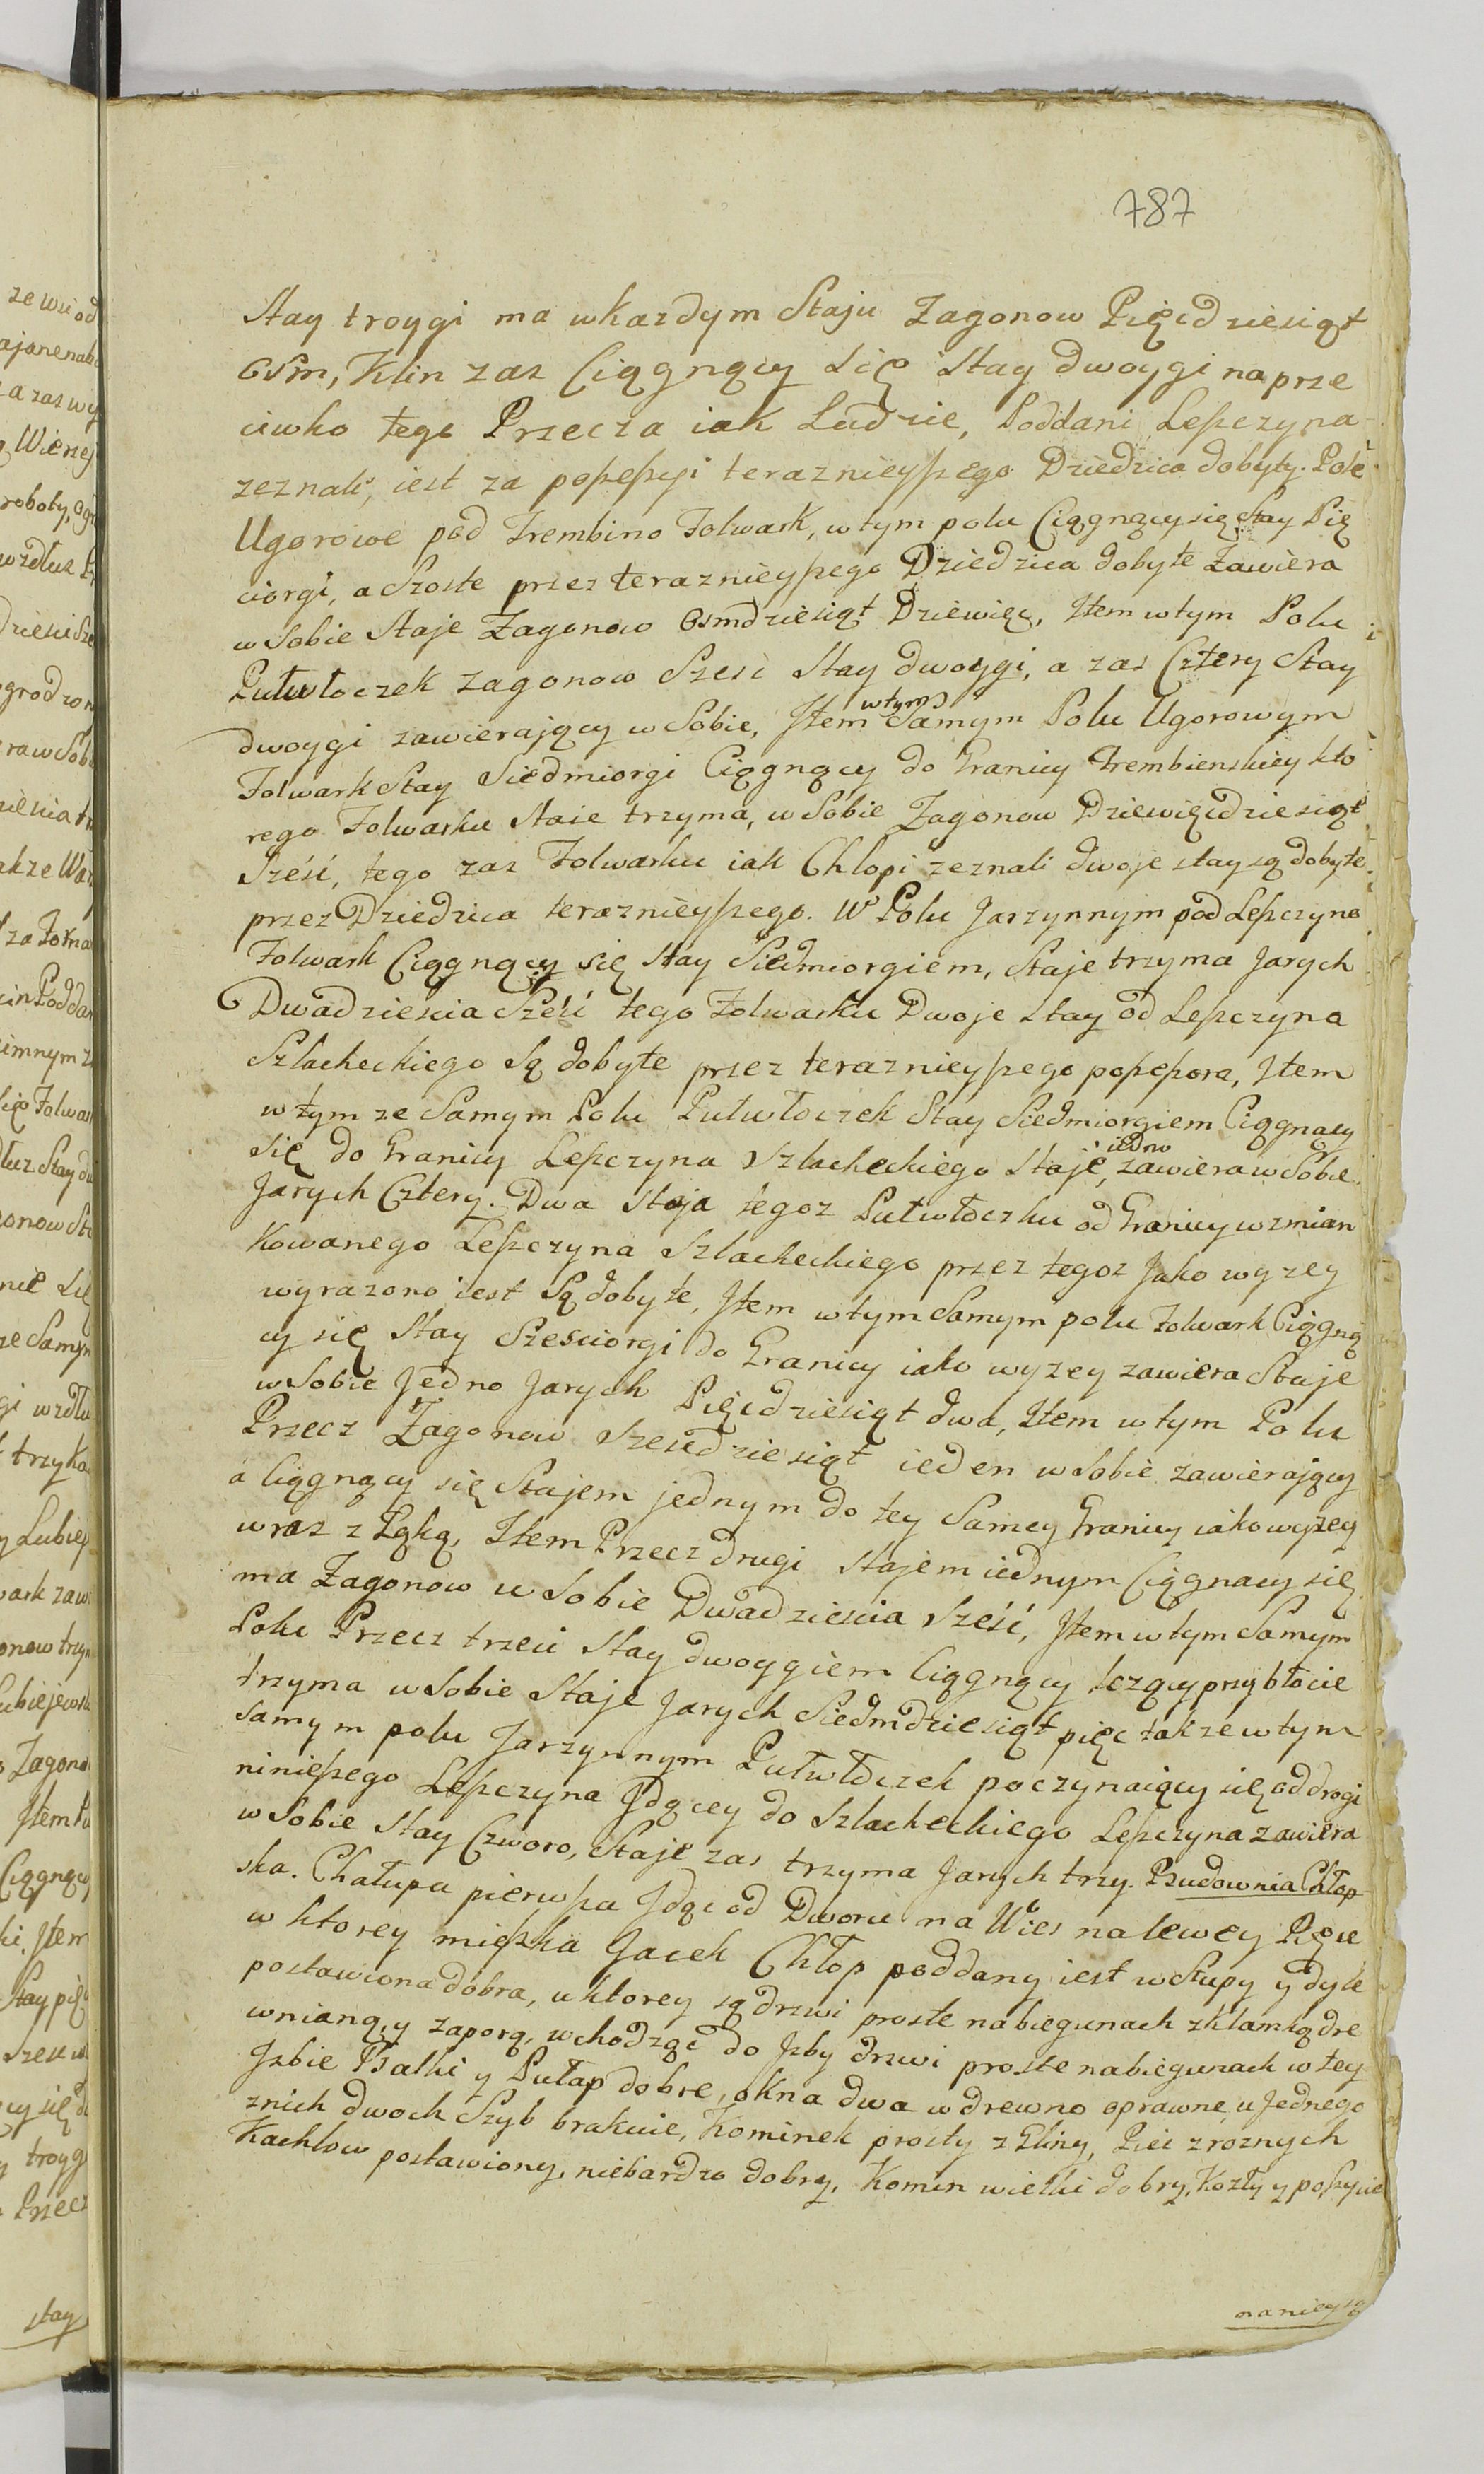 787
Stay troygi ma w kazdym Staju Zagonow Pięcdziesiąt
Osm, Klin zas Ciągnący się Stay dwoygi naprze
ciwko tego Przecza iak Ludzie, Poddani Lepczyna
zeznali, iest za popepyi teraznieyszego Dziedzica dobyty. Pole
Ugorowe pod Trembino Folwark, w tym polu Ciągnący się Stay Pię
ciorgi, a Szoste przez teraznieyszego Dziedzica dobyte Zawiera
w Sobie Staje Zagonow Osmdziesiąt Dziewięc, Item w tym Polu
Pułwłoczek zagonow Szesc Stay dwoygi, a zas Cztery Stay
dwoygi zawierający w Sobie, Item w tym Samym Polu Ugorowym
Folwark Stay Siedmiorgi Ciągnący do Granicy Trembienskiey kto
rego Folwarku Staie trzyma, w Sobie Zagonow Dziewięcdziesiąt
Sześć, tego zas Folwarku iak Chlopi zeznali dwoje stay są dobyte
przez Dziedzica teraznieyszego. W Polu Jarzynnym pod Lepczyno
Folwark Ciągnący się Stay Siedmiorgiem, Staje trzyma Jarych
Dwadziescia Sześć tego Folwarku Dwoje Stay od Lepczyna
Szlacheckiego Są dobyte przez teraznieyszego popepora, Item
w tym ze Samym Polu Pułwłoczek Stay Siedmiorgiem Ciągnący
się do Granicy Lepczyna Szlacheckiego Staje, iedno zawiera w Sobie
Jarych Cztery. Dwa Staja tegoz Pułwłoczku od Granicy wzmian
kowanego Lepczyna Szlacheckiego przez tegoz Jako wyzey
wyrazono iest Są dobyte, Item w tym Samym polu Folwark Ciągną
cy się Stay Szesciorgi do Granicy iako wyzey zawiera Staje
w Sobie Jedno Jarych Pięcdziesiąt dwa, Item w tym Polu
Przecz Zagonow Szescdziesiąt ieden w Sobie zawierający
a Ciągnący się Stajem jednym do tey Samey Granicy iako wyzey
wraz z Łąką, Item Przecz drugi Stajem iednym Ciągnacy się
ma Zagonow w Sobie Dwadziescia Sześć, Item w tym Samym
Polu Przecz trzeci Stay dwoygiem Ciągnący lezący przy błocie
trzyma w Sobie Staje Jarych Siedmdziesiąt pięc takze w tym
Samym polu Jarzynnym Pułwłoczek poczynaiący się od drogi
niniepszego Lepczyna Jdącey do Szlacheckiego Lepczyna zawiera
w Sobie Stay Czworo, Staje zas trzyma Jarych trzy. Budownia Chłop
ska. Chałupa pierwsza Jdąc od Dworu na Wies na lewey Ręce
w ktorey mięszka Jacek Chłop poddany iest w Słupy y dyle
postawiona dobra, u ktorey są drzwi proste na biegunach z klamką dre
wnianą, y zaporą, wchodząc do Jzby drzwi proste na biegunach w tey
Jzbie Balki y Pułap dobre, okna dwa w drewno oprawne u Jednego
z nich dwoch Szyb brakuie, Kominek prosty z Gliny, Piec z roznych
Kachlow postawiony, niebardzo dobry, Komin wielki dobry, Kozły y poszycie
na niey są